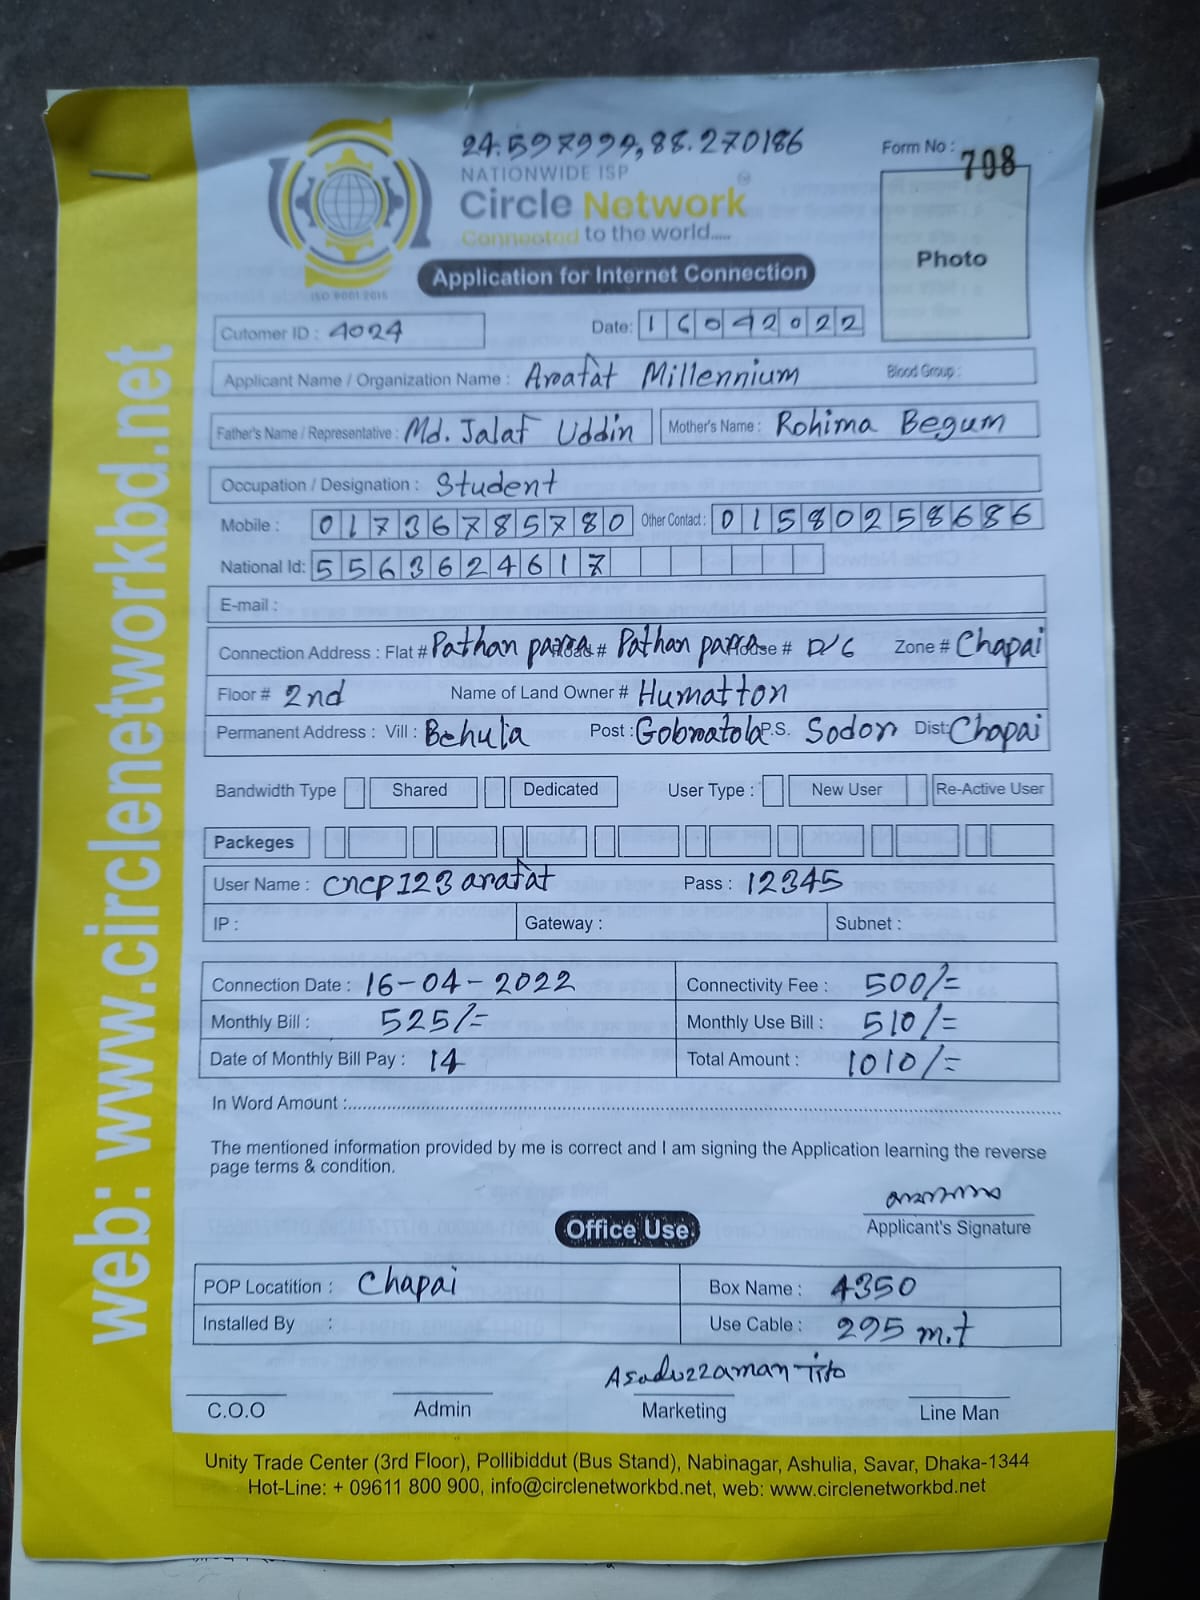 24.597999, 88.270186
Form No : 708
NATIONWIDE ISP
Circle Network
Connected to the world.....
Photo
ISO 9001:2015
Application for Internet Connection
Cutomer ID : 4024
Date: 16042022
Applicant Name / Organization Name : Arafat Millennium Blood Group :
Father's Name / Representative : Md. Jalaf Uddin Mother's Name : Rohima Begum
Occupation / Designation : Student
Mobile : 01736785780 Other Contact : 01580258686
National Id: 5563624617
E-mail :
Connection Address : Flat # Pathan parra Road # Pathan parra House # D/6 Zone # Chapai
Floor # 2nd Name of Land Owner # Humatton
Permanent Address : Vill : Behula Post : Gobratola P.S. Sodor Dist: Chapai
Bandwidth Type Shared Dedicated User Type : New User Re-Active User
Packeges
User Name : cncp123arafat Pass : 12345
IP : Gateway : Subnet :
Connection Date : 16-04-2022 Connectivity Fee : 500/=
Monthly Bill : 525/= Monthly Use Bill : 510/=
Date of Monthly Bill Pay : 14 Total Amount : 1010/=
In Word Amount :
The mentioned information provided by me is correct and I am signing the Application learning the reverse
page terms & condition.
Applicant's Signature
Office Use
POP Locatition : Chapai Box Name : 4350
Installed By : Use Cable : 295 m.t
Asaduzzaman Tito
C.O.O Admin Marketing Line Man
Unity Trade Center (3rd Floor), Pollibiddut (Bus Stand), Nabinagar, Ashulia, Savar, Dhaka-1344
Hot-Line: + 09611 800 900, info@circlenetworkbd.net, web: www.circlenetworkbd.net
web: www.circlenetworkbd.net